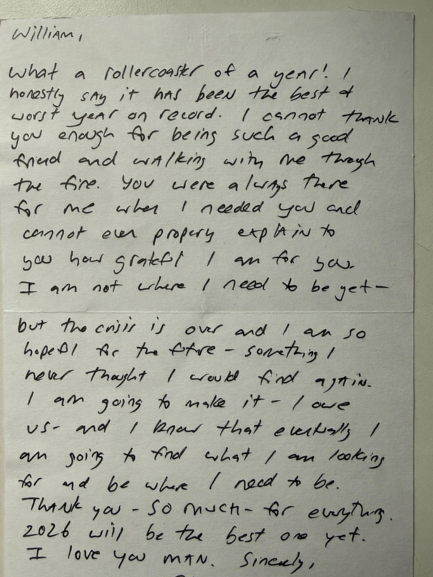 William,
What a rollercoaster of a year! I
honestly say it has been the best &
worst year on record. I cannot thank
you enough for being such a good
friend and walking with me though
the fire. You were always there
for me when I needed you and
cannot even properly explain to
you how grateful I am for you.
I am not where I need to be yet—
but the crisis is over and I am so
hopeful for the future - something I
never thought I would find again.
I am going to make it - I owe
us - and I know that eventually I
am going to find what I am looking
for and be where I need to be.
Thank you - so much - for everything.
2026 will be the best one yet.
I love you man. Sincerely,